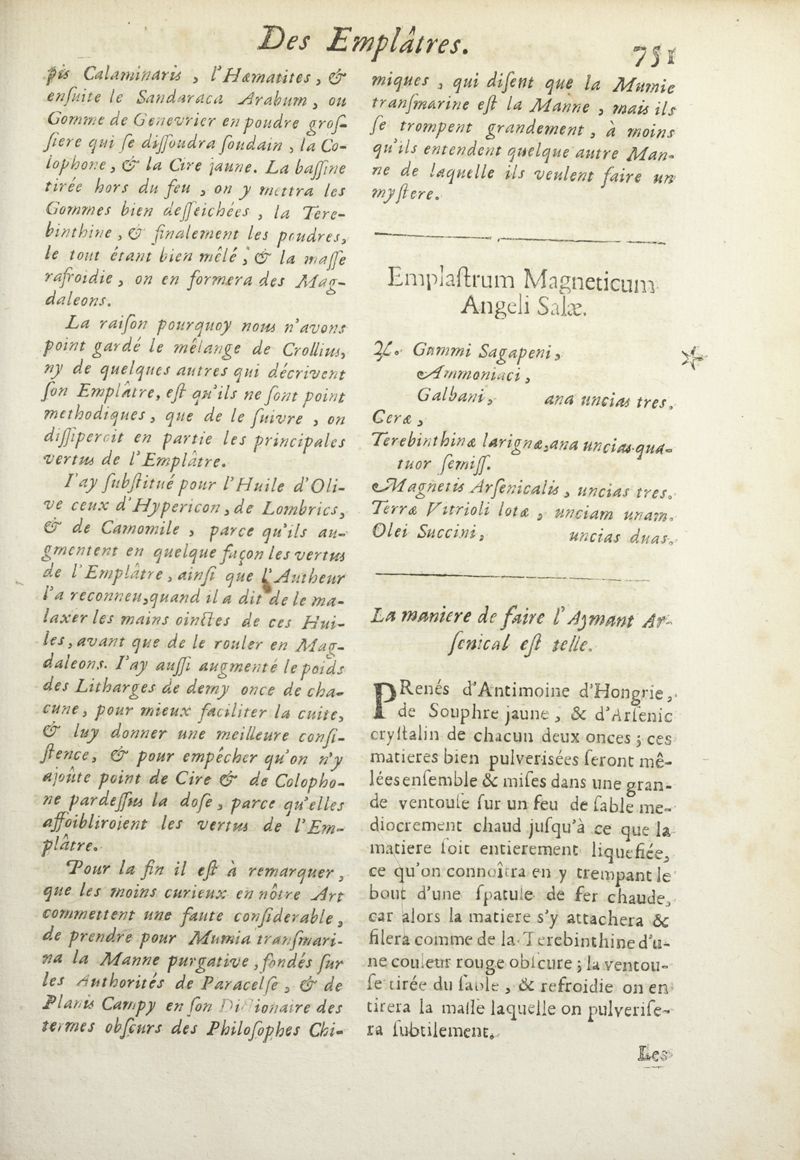 Des Emplâtres.
751
pis Calaminaris, l'Hæmatites, &
ensuite le Sandaraca Arabum, ou
Gomme de Genevrier en poudre gros-
siere qui se dissoudra soudain, la Co-
lophone, & la Cire jaune. La bassine
tirée hors du feu, on y mettra les
Gommes bien desseichées, la Tere-
binthine, & finalement les poudres,
le tout étant bien mêlé, & la masse
rafroidie, on en formera des Mag-
daleons.
La raison pourquoy nous n'avons
point gardé le mêlange de Crollius,
ny de quelques autres qui décrivent
son Emplâtre, est qu'ils ne sont point
methodiques, que de le suivre, on
dissiperoit en partie les principales
vertus de l'Emplâtre.
J'ay substitué pour l'Huile d'Oli-
ve ceux d'Hypericon, de Lombrics,
& de Camomile, parce qu'ils au-
gmentent en quelque façon les vertus
de l'Emplâtre, ainsi que l'Autheur
l'a reconneu, quand il a dit de le ma-
laxer les mains ointtes de ces Hui-
les, avant que de le rouler en Mag-
daleons. J'ay aussi augmenté le poids
des Litharges de demy once de cha-
cune, pour mieux faciliter la cuite,
& luy donner une meilleure consi-
stence, & pour empécher qu'on n'y
ajoûte point de Cire & de Colopho-
ne pardessus la dose, parce qu'elles
affoibliroient les vertus de l'Em-
plâtre.
Pour la fin il est à remarquer,
que les moins curieux en nôtre Art
commettent une faute considerable,
de prendre pour Mumia transmari-
na la Manne purgative, fondés sur
les Authorités de Paracelse, & de
Planis Campy en son Dictionaire des
termes obscurs des Philosophes Chi-
miques, qui disent que la Mumie
transmarine est la Manne, mais ils
se trompent grandement, à moins
qu'ils entendent quelque autre Man-
ne de laquelle ils veulent faire un
mystere.
Emplastrum Magneticum
Angeli Salæ.
℞. Gummi Sagapeni,
Ammoniaci,
Galbani, ana uncias tres,
Ceræ,
Terebinthinæ larignæ, ana uncias qua-
tuor semiss.
Magnetis Arsenicalis, uncias tres.
Terræ Vitrioli lotæ, unciam unam.
Olei Succini, uncias duas.
La maniere de faire l'Aymant Ar-
senical est telle.
PRenés d'Antimoine d'Hongrie,
de Souphre jaune, & d'Arsenic
crystalin de chacun deux onces; ces
matieres bien pulverisées seront mê-
lées ensemble & mises dans une gran-
de ventouse sur un feu de sable me-
diocrement chaud jusqu'à ce que la
matiere soit entierement liquefiée,
ce qu'on connoîtra en y trempant le
bout d'une spatule de fer chaude,
car alors la matiere s'y attachera &
filera comme de la Terebinthine d'u-
ne couleur rouge obscure; la ventou-
se tirée du sable, & refroidie on en
tirera la masse laquelle on pulverise-
ra subtilement.
Les